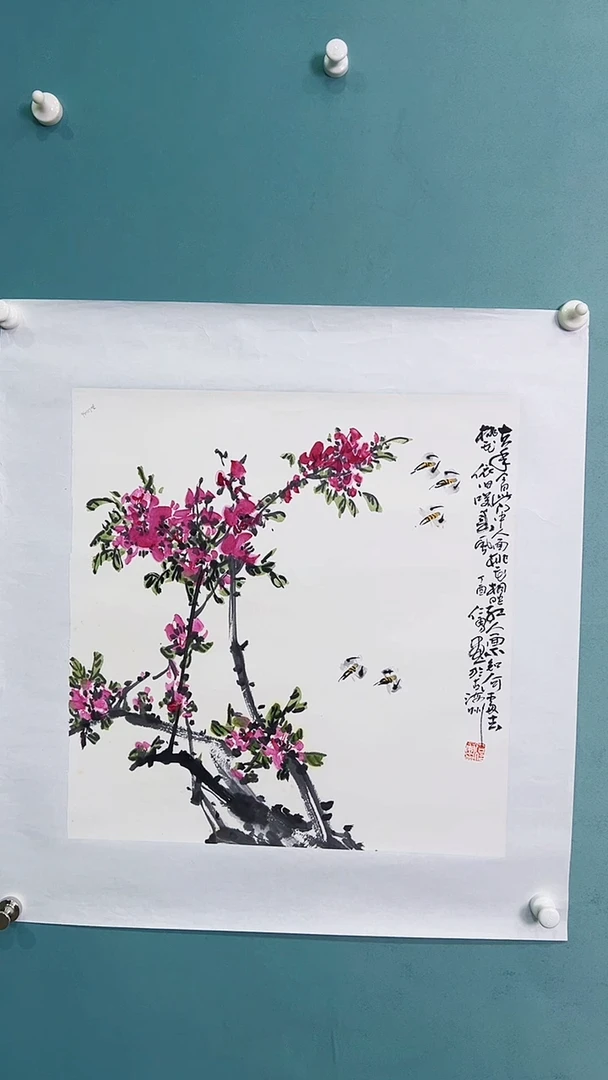 去年今日此門中人面桃花相映红人面不知何處去
桃花依旧咲春風 丁酉